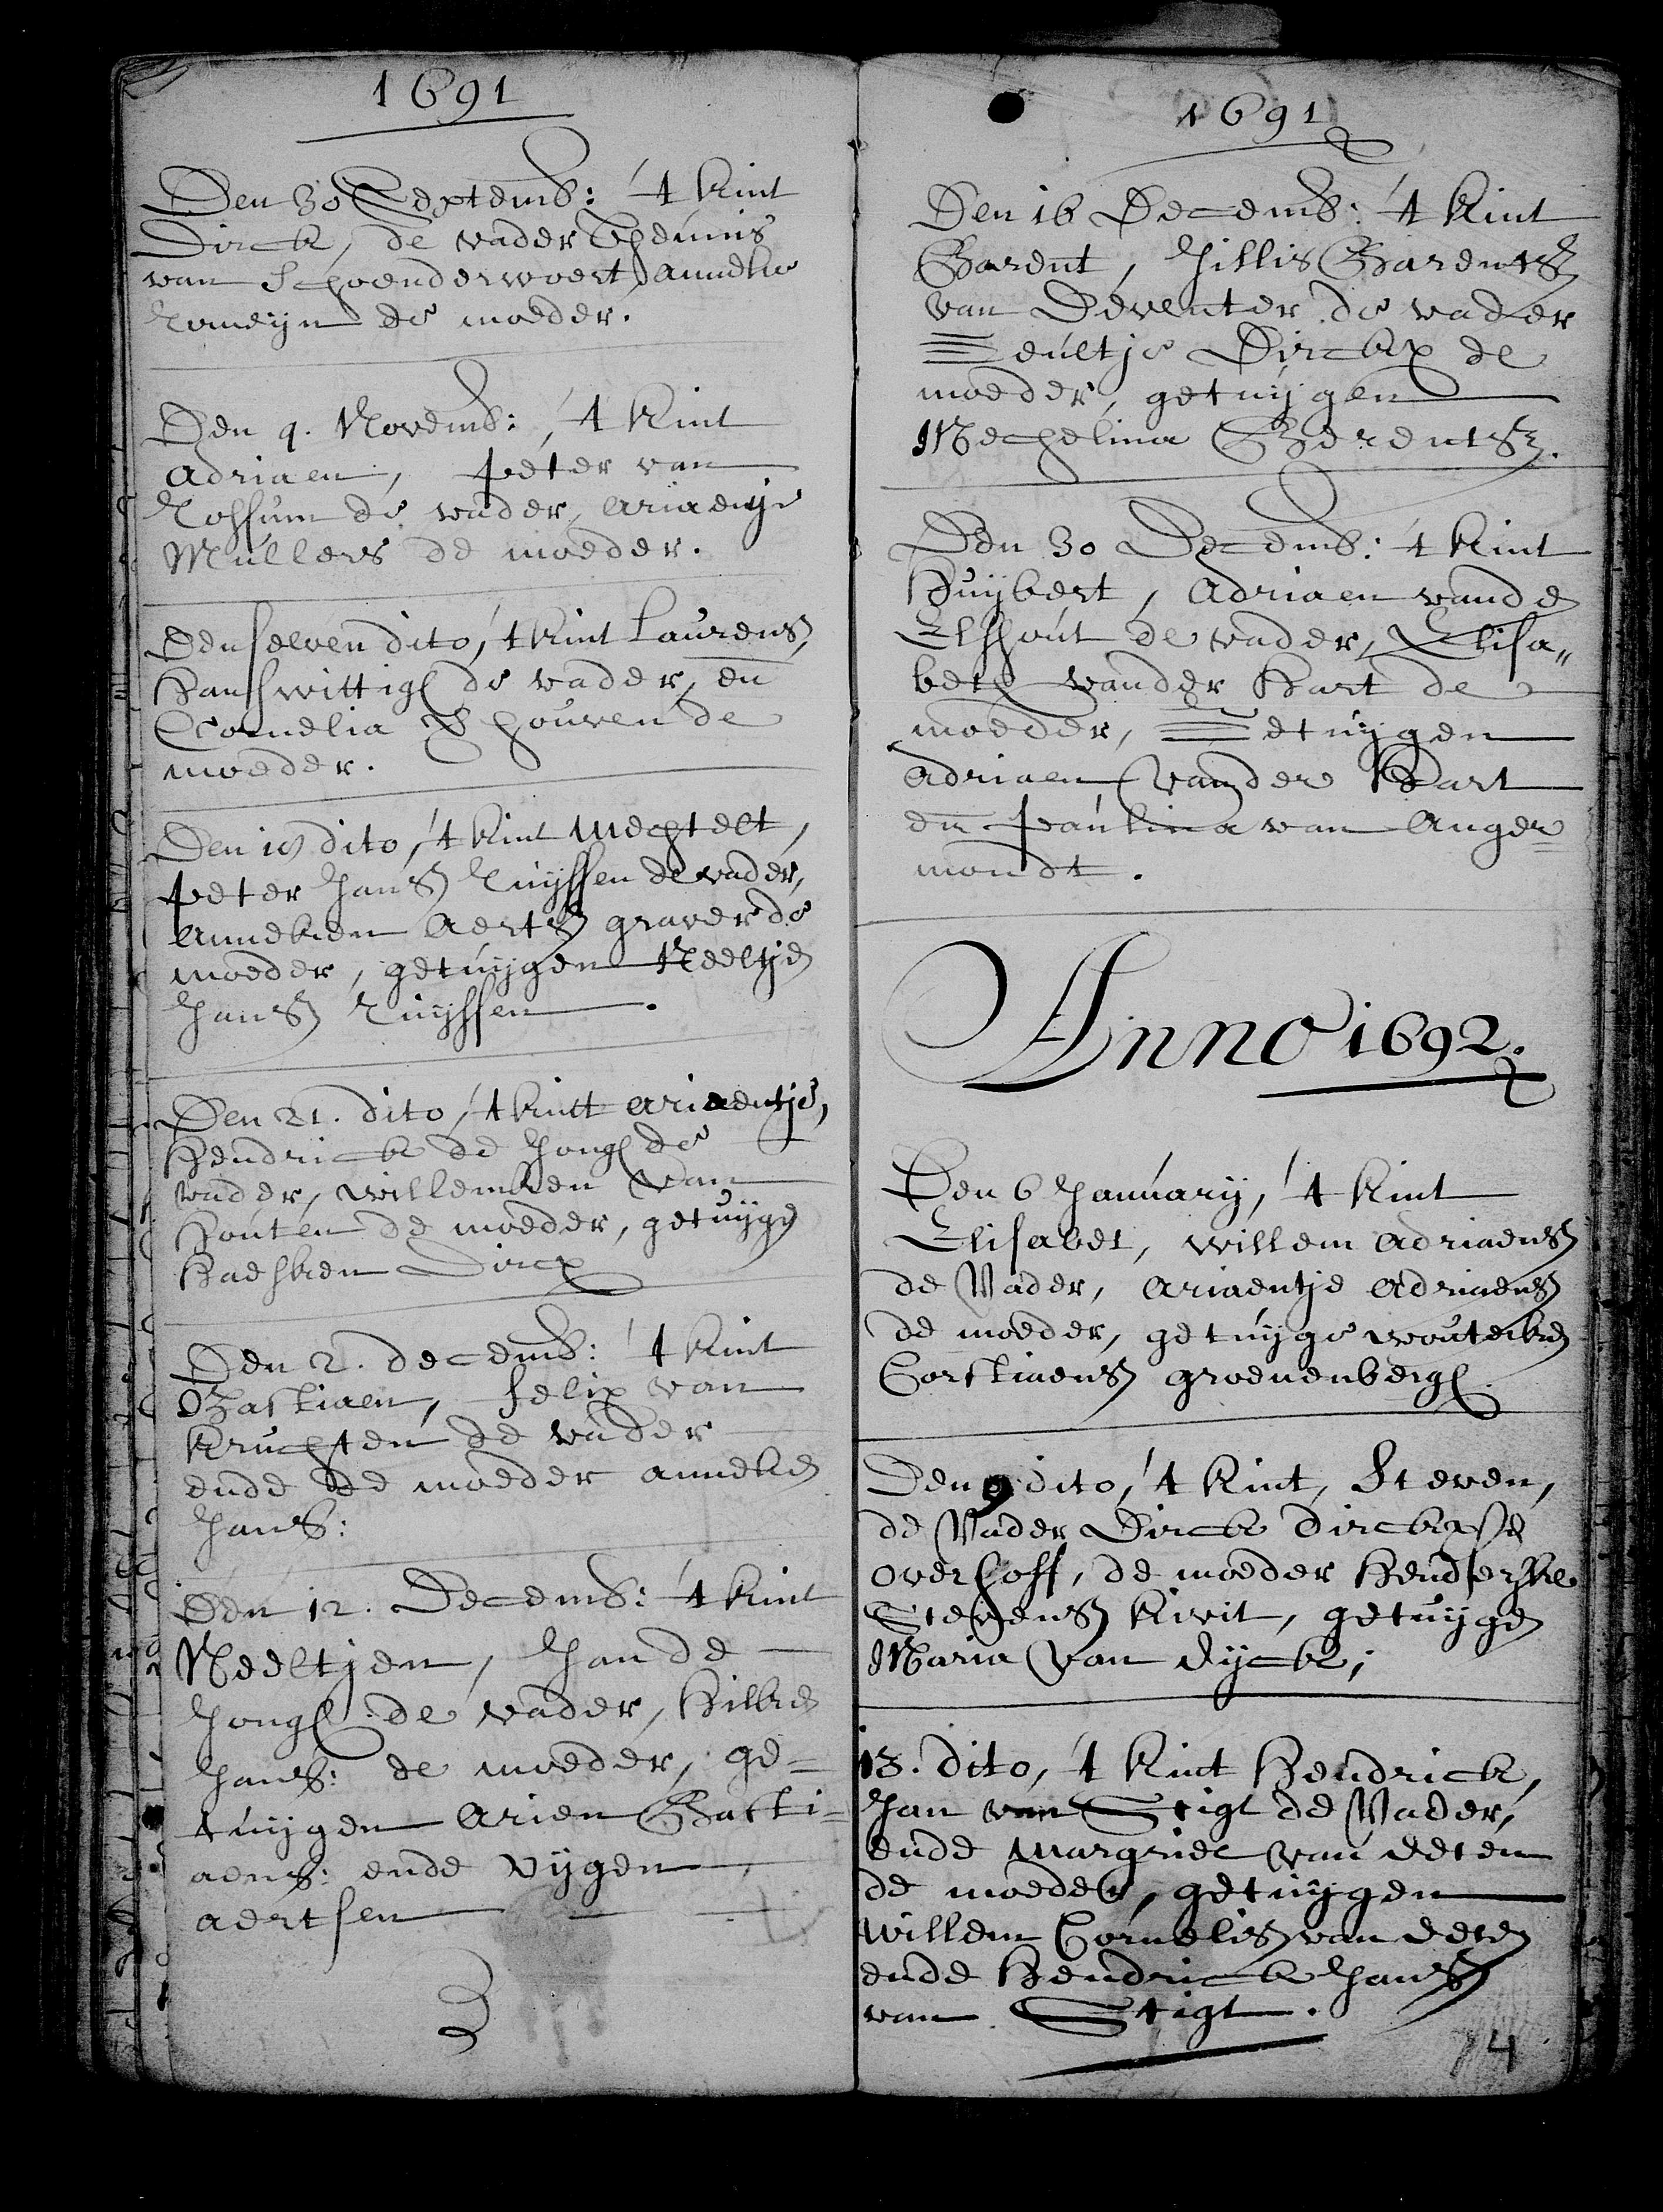 1691
Den 30 Septemb: 't kint
Dirck, de vader Theunis
van Schoenderwoert, anneke
Romeijn de moeder.
Den 9. Novemb: 't kint
Adriaen, peter van
Rossum de vader, Ariaentje
Mullers de moeder.
Denselven dito, 't kint Laurens,
Hans wittigh de vader, en
Cornelia Schouven de
moeder.
Den 19 dito, 't kint Mechtelt,
peter Jans Ruijssen de vader,
Anneken Aerts graver de
moeder, getuijgen Neeltje
Jans Ruijssen.
Den 21. dito, 't kintt Ariaentje,
Hendrick de Jongh de
vader, willemken van
Houten de moeder, getuijge
Haesken Dircx
Den 2. decemb: 't kint
Bastiaen, felix van
kruchten de vader
ende de moeder anneke
Jans:
Den 12. Decemb: 't kint
Neeltjen, Jan de
Jongh de vader, Hilke
Jans: de moeder, ge=
tuijgen Arien Basti=
aens: ende vijgen
aertsen
3
1691
Den 16 Decemb: 't kint
Barent, Jillis Barents
van Deventer de vader
eultje Dirckx de
moeder, getuijgen
Mechelina Berents.
Den 30 Decemb: 't kint
Huijbert, Adriaen vande
Elshout de vader, Elisa„
beth vander Hart de
moeder, getuijgen
Adriaen vander Hart
en paulina van Anger=
mondt.
Anno 1692.
Den 6 January, 't kint
Elisabet, willem Adriaens
de Vader, Ariaentje Adriaens
de moeder, getuijge wouteke
Corstiaens groenenbergh.
Den 9 dito, 't kint, Steven,
de Vader Dirck Dirckxse
overhoff, de moeder Henderske
Stevens kivit, getuijge
Maria van dijck;
13. dito, 't kint Hendrick,
Jan van Stigt de Vader,
ende Margriet van deten
de moeder, getuijgen
Willem Cornelis van dete
ende Hendrick Jans
van Stigt.
4